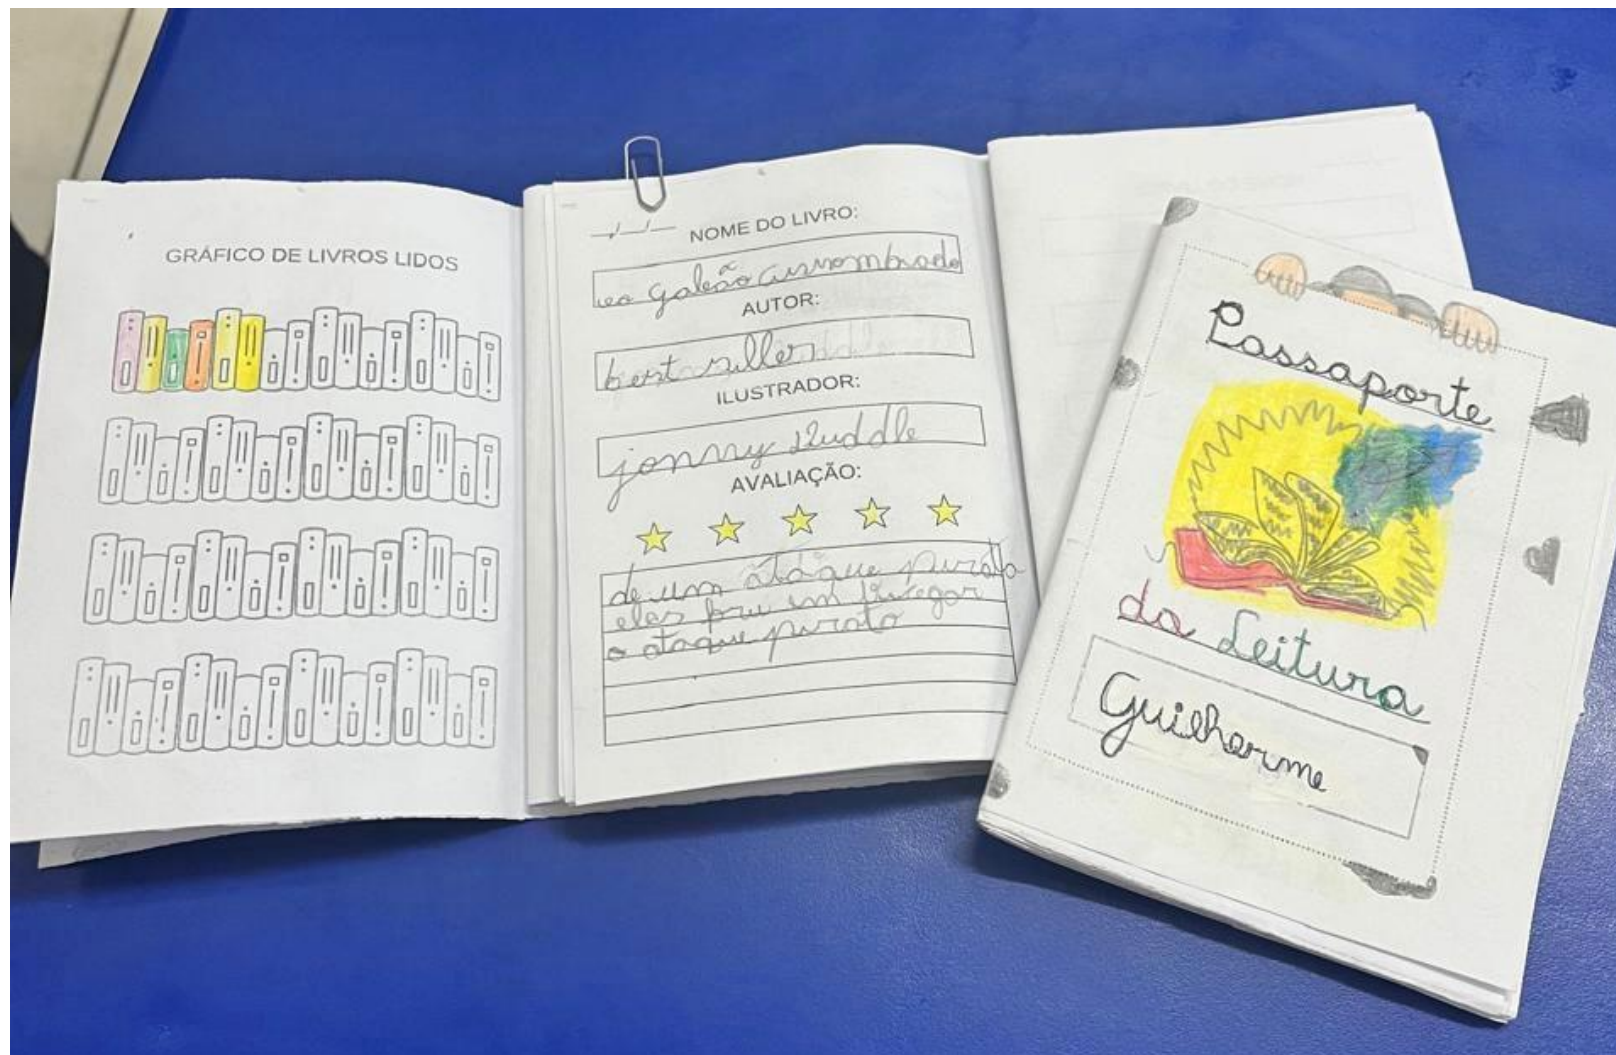 GRÁFICO DE LIVROS LIDOS
NOME DO LIVRO:
galeão assombrado
AUTOR:
best seller
ILUSTRADOR:
jonny Duddle
AVALIAÇÃO:
de um ataque pirata
eles em
o ataque pirata
Passaporte
da Leitura
Guilherme